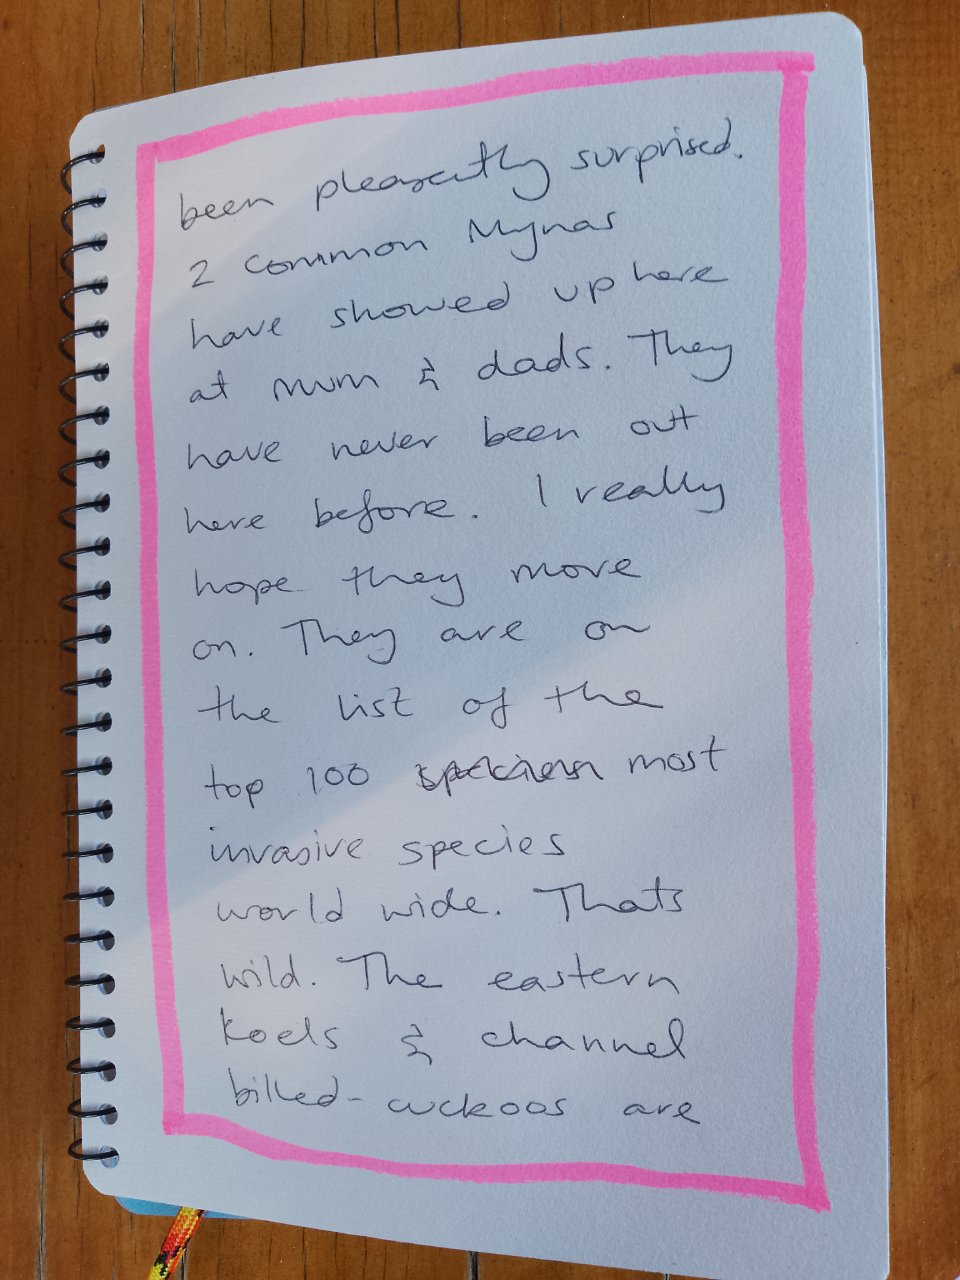 been pleasently surprised.
2 common Mynas
have showed up here
at mum & dads. They
have never been out
here before. I really
hope they move
on. They are on
the list of the
top 100 most
invasive species
world wide. Thats
wild. The eastern
Koels & channel
billed-cuckoos are